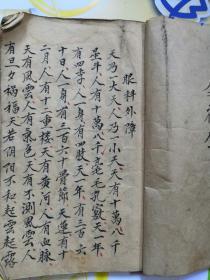 眼科外障
天乃一大天人乃一小天天有十萬八千
星斗人有十萬八千毫毛孔竅天一年
有四季人一身有四肢天一年有三百六
十日人一身有三百六十骨節天運有十
二月人有十二重楼天有黃河人有血脉
天有風雲人有氣色天有不測風雲人
有旦夕禍福天若阴阳不和起雲起霧